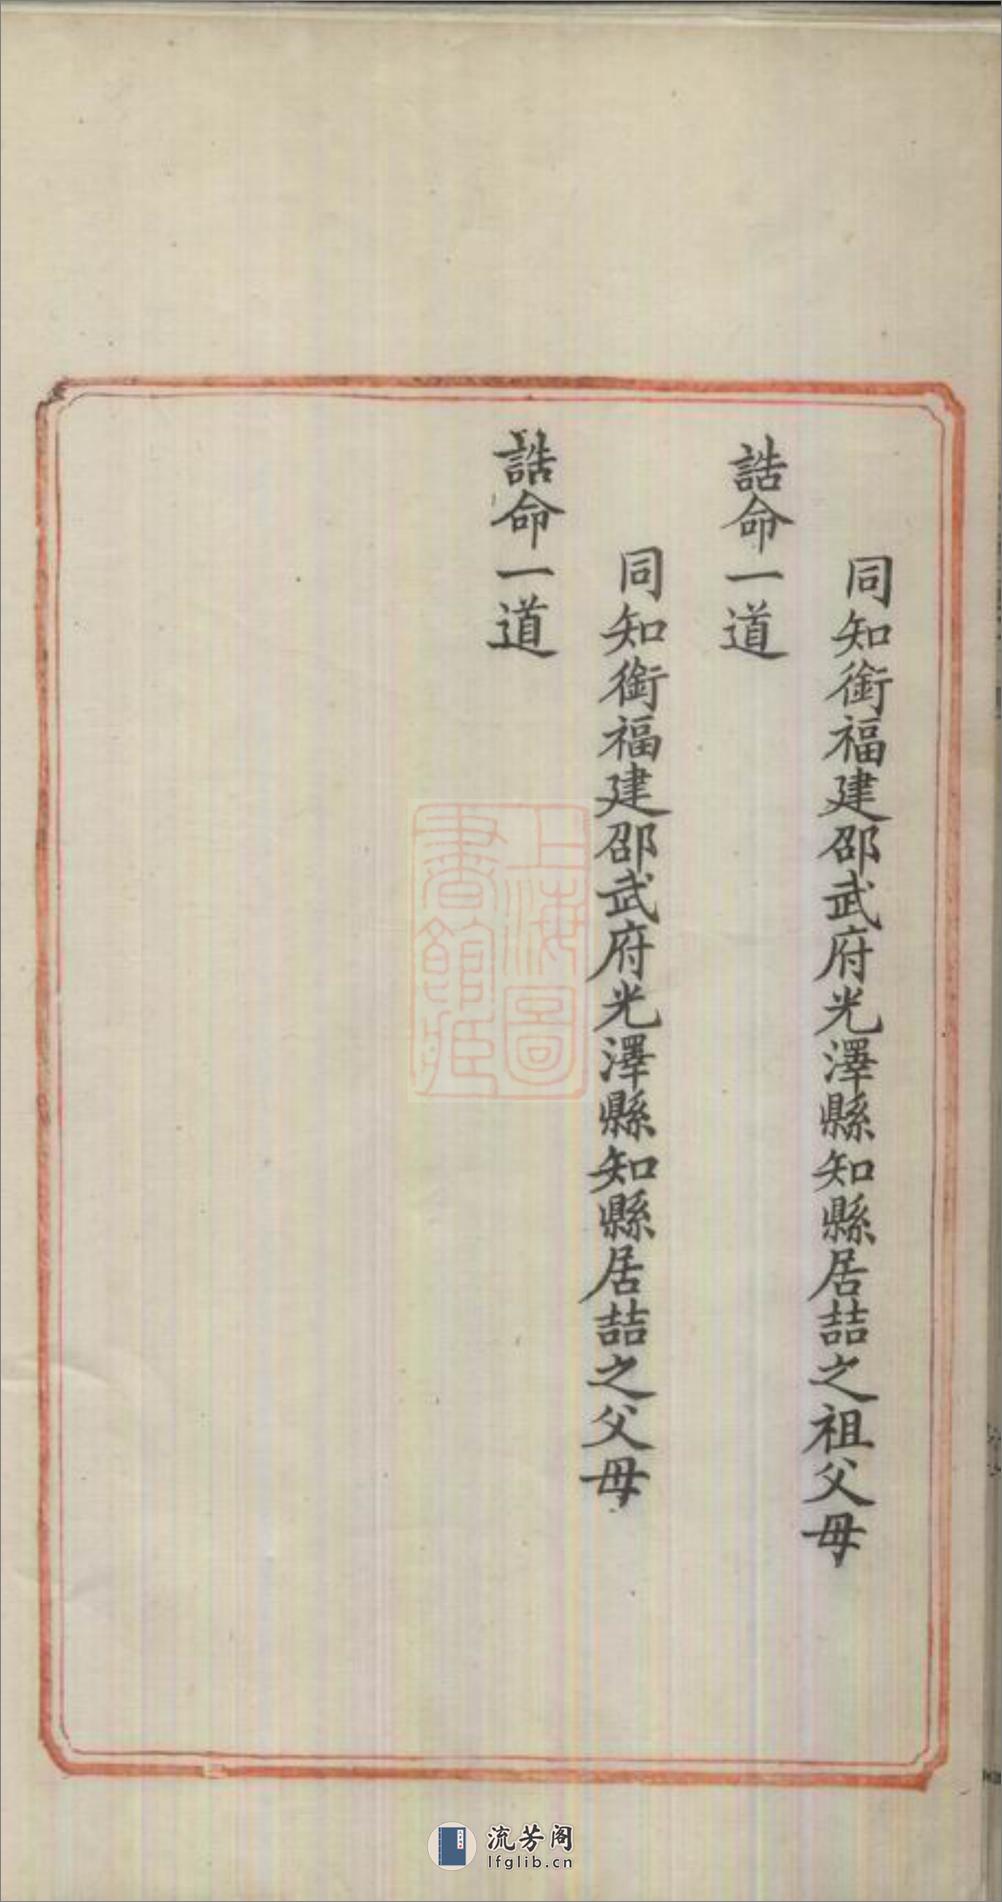 同知銜福建邵武府光澤縣知縣居喆之祖父母
誥命一道
同知銜福建邵武府光澤縣知縣居喆之父母
誥命一道
上海圖
書館藏
流芳阁
lfglib.cn